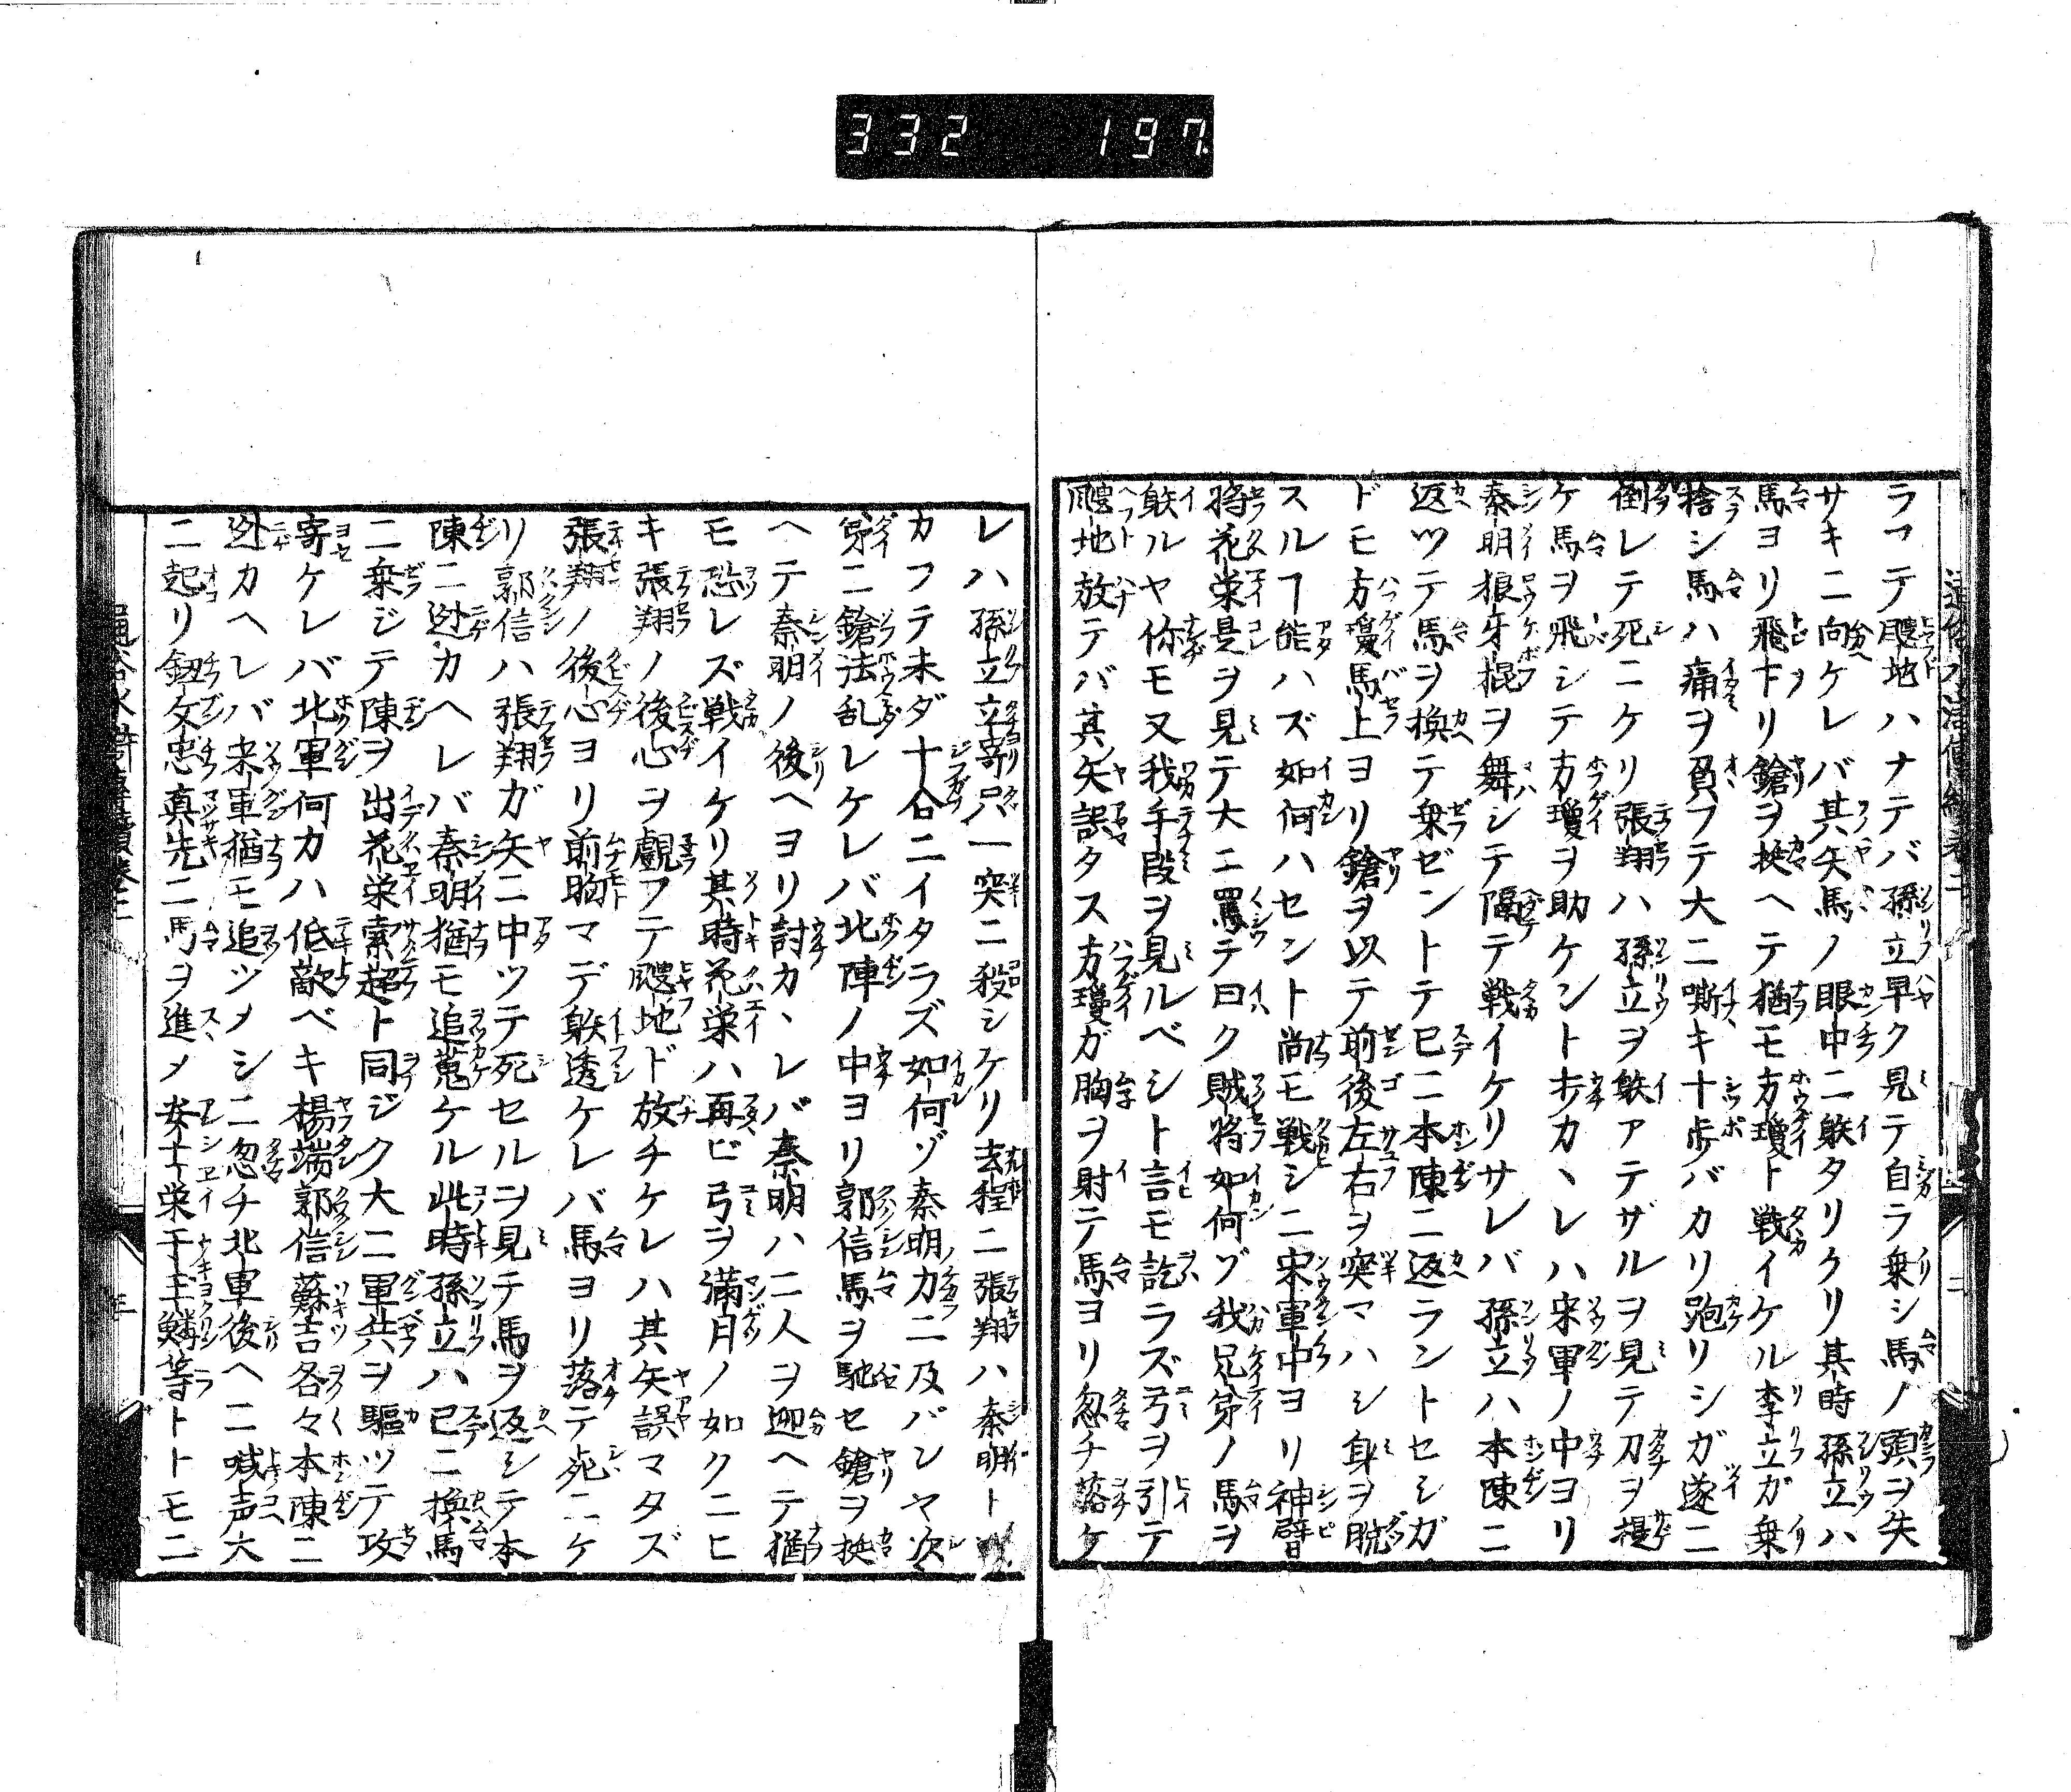 332 197
ラフテ颼地ハナテバ孫立早ク見テ自ラ乗シ馬ノ頭ヲ失
サキニ向ケレバ其矢馬ノ眼中ニ躲タリクリ其時孫立ハ
馬ヨリ飛下リ鎗ヲ挾ヘテ猶モ方瓊ト戦イケル李立ガ乗
捨シ馬ハ痛ヲ負フテ大ニ嘶キ十歩バカリ跑リシガ遂ニ
倒レテ死ニケリ張翔ハ孫立ヲ躲アテザルヲ見テ刀ヲ提
ケ馬ヲ飛シテ方瓊ヲ助ケントカヽレハ宋軍ノ中ヨリ
秦明狼牙棍ヲ舞シテ隔テ戦イケリサレバ孫立ハ本陳ニ
返ツテ馬ヲ換テ乗ゼントテ已ニ本陳ニ返ラントセシガ
ドモ方瓊馬上ヨリ鎗ヲ以テ前後左右ヲ突マハシ身ヲ脱
スルヿ能ハズ如何ハセント尚モ戦シニ宋軍中ヨリ神臂
将花栄是ヲ見テ大ニ罵テ曰ク賊将如何ゾ我兄弟ノ馬ヲ
躲ルヤ你モ又我手段ヲ見ルベシト言モ訖ラズ弓ヲ引テ
颼地放テバ其矢誤タス方瓊ガ胸ヲ射テ馬ヨリ忽チ落ケ
レハ孫立立寄只一突ニ殺シケリ去程ニ張翔ハ秦明ト戦
カフテ未ダ十合ニイタラズ如何ゾ秦明ノ力ニ及バンヤ次
第ニ鎗法乱レケレバ北陣ノ中ヨリ郭信馬ヲ馳セ鎗ヲ挾
ヘテ秦明ノ後ヘヨリ討カヽレバ秦明ハ二人ヲ迎ヘテ猶
モ恐レズ戦イケリ其時花栄ハ再ビ弓ヲ満月ノ如クニヒ
キ張翔ノ後心ヲ覷フテ颼地ド放チケレハ其矢誤マタズ
張翔ノ後心ヨリ前胸マデ躲透ケレバ馬ヨリ落テ死ニケ
リ郭信ハ張翔ガ矢ニ中ツテ死セルヲ見テ馬ヲ返シテ本
陳ニ迯カヘレバ秦明猶モ追蒐ケル此時孫立ハ已ニ換馬
ニ乗ジテ陳ヲ出花栄索超ト同ジク大ニ軍兵ヲ驅ツテ攻
寄ケレバ北軍何カハ低敵ベキ楊端郭信蘇吉各々本陳ニ
迯カヘレバ宋軍猶モ追ツメシニ忽チ北軍後ヘニ喊声大
ニ起リ鈕文忠真先ニ馬ヲ進メ安士栄于玉鱗等トトモニ